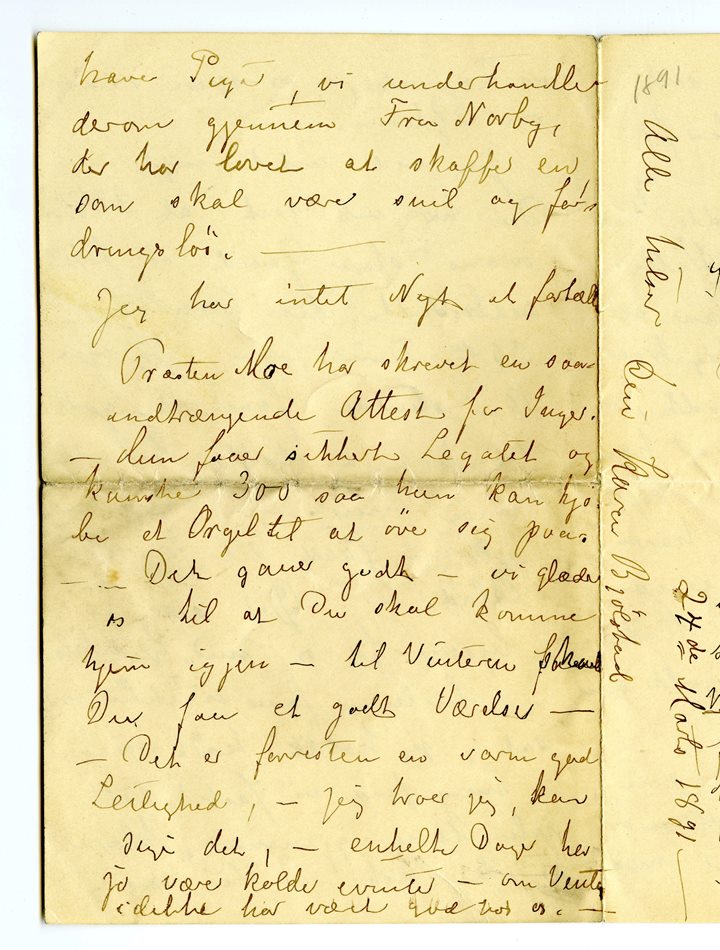 have Pige, vi underhandler
derom gjennem Fru Norby,
der har lovet at skaffe en
som skal være snil og for-
dringsløs.
Jeg har intet Nyt at fortælle
Præsten Moe har skrevet en saa
indtrængende Attest for Inger.
– hun faaer sikkert Legatet og
kanske 300 saa hun kan kjø-
be et Orgel til at øve sig paa.
– – Det gaaer godt – vi glæder
os til at Du skal komme
hjem igjen – til Vinteren skal
Du faa et godt Værelse –
– Det er forresten en varm god
Leilighed, – jeg troer jeg kan
sige det, – enkelte Dage har
jo været kolde – om Vinte
ikke har været god hos os. –
1891
Alle hilser Din Karen Bjølstad
24de Marts 1891 –